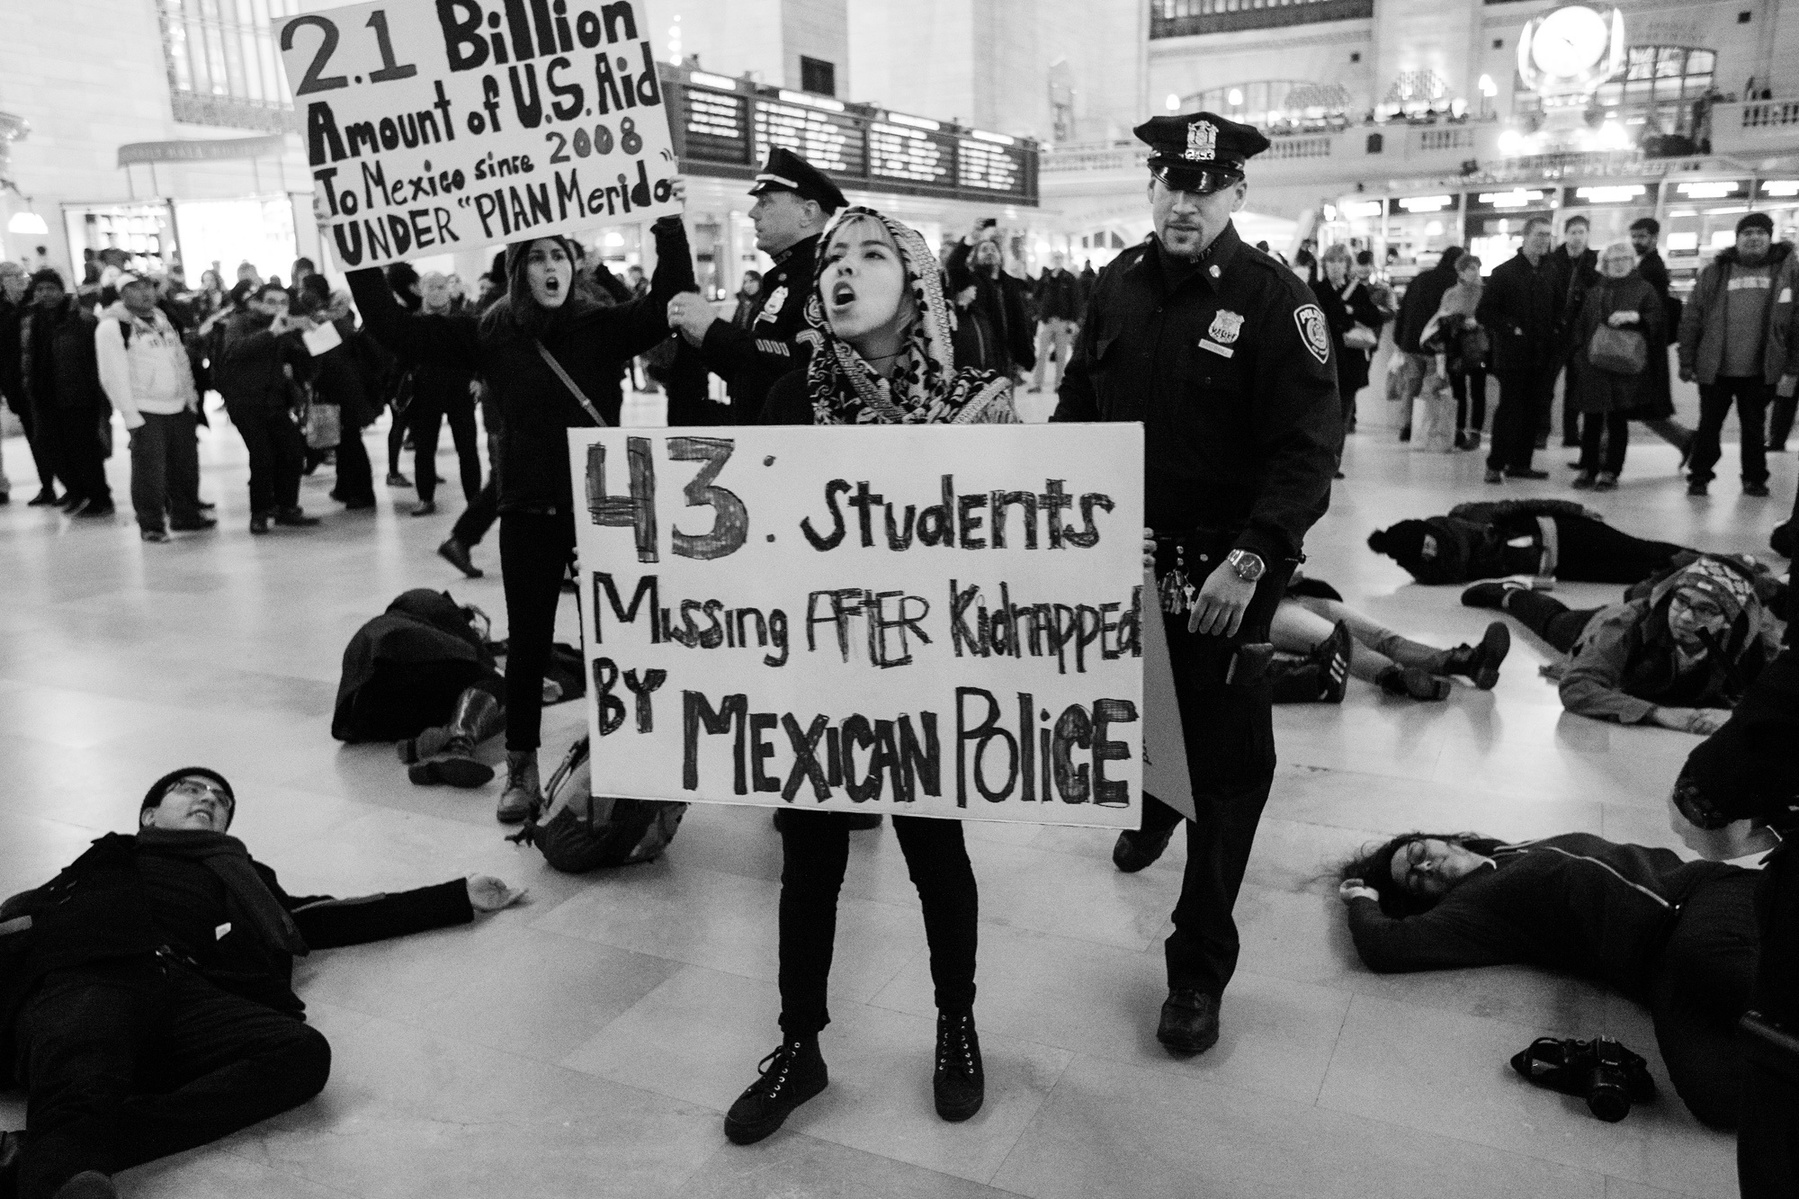 2.1 Billion
Amount of U.S. Aid
To Mexico since 2008
UNDER "PLAN Merida"
43: Students
Missing AFTER Kidnapped
BY MEXICAN POLiCE
POLICE